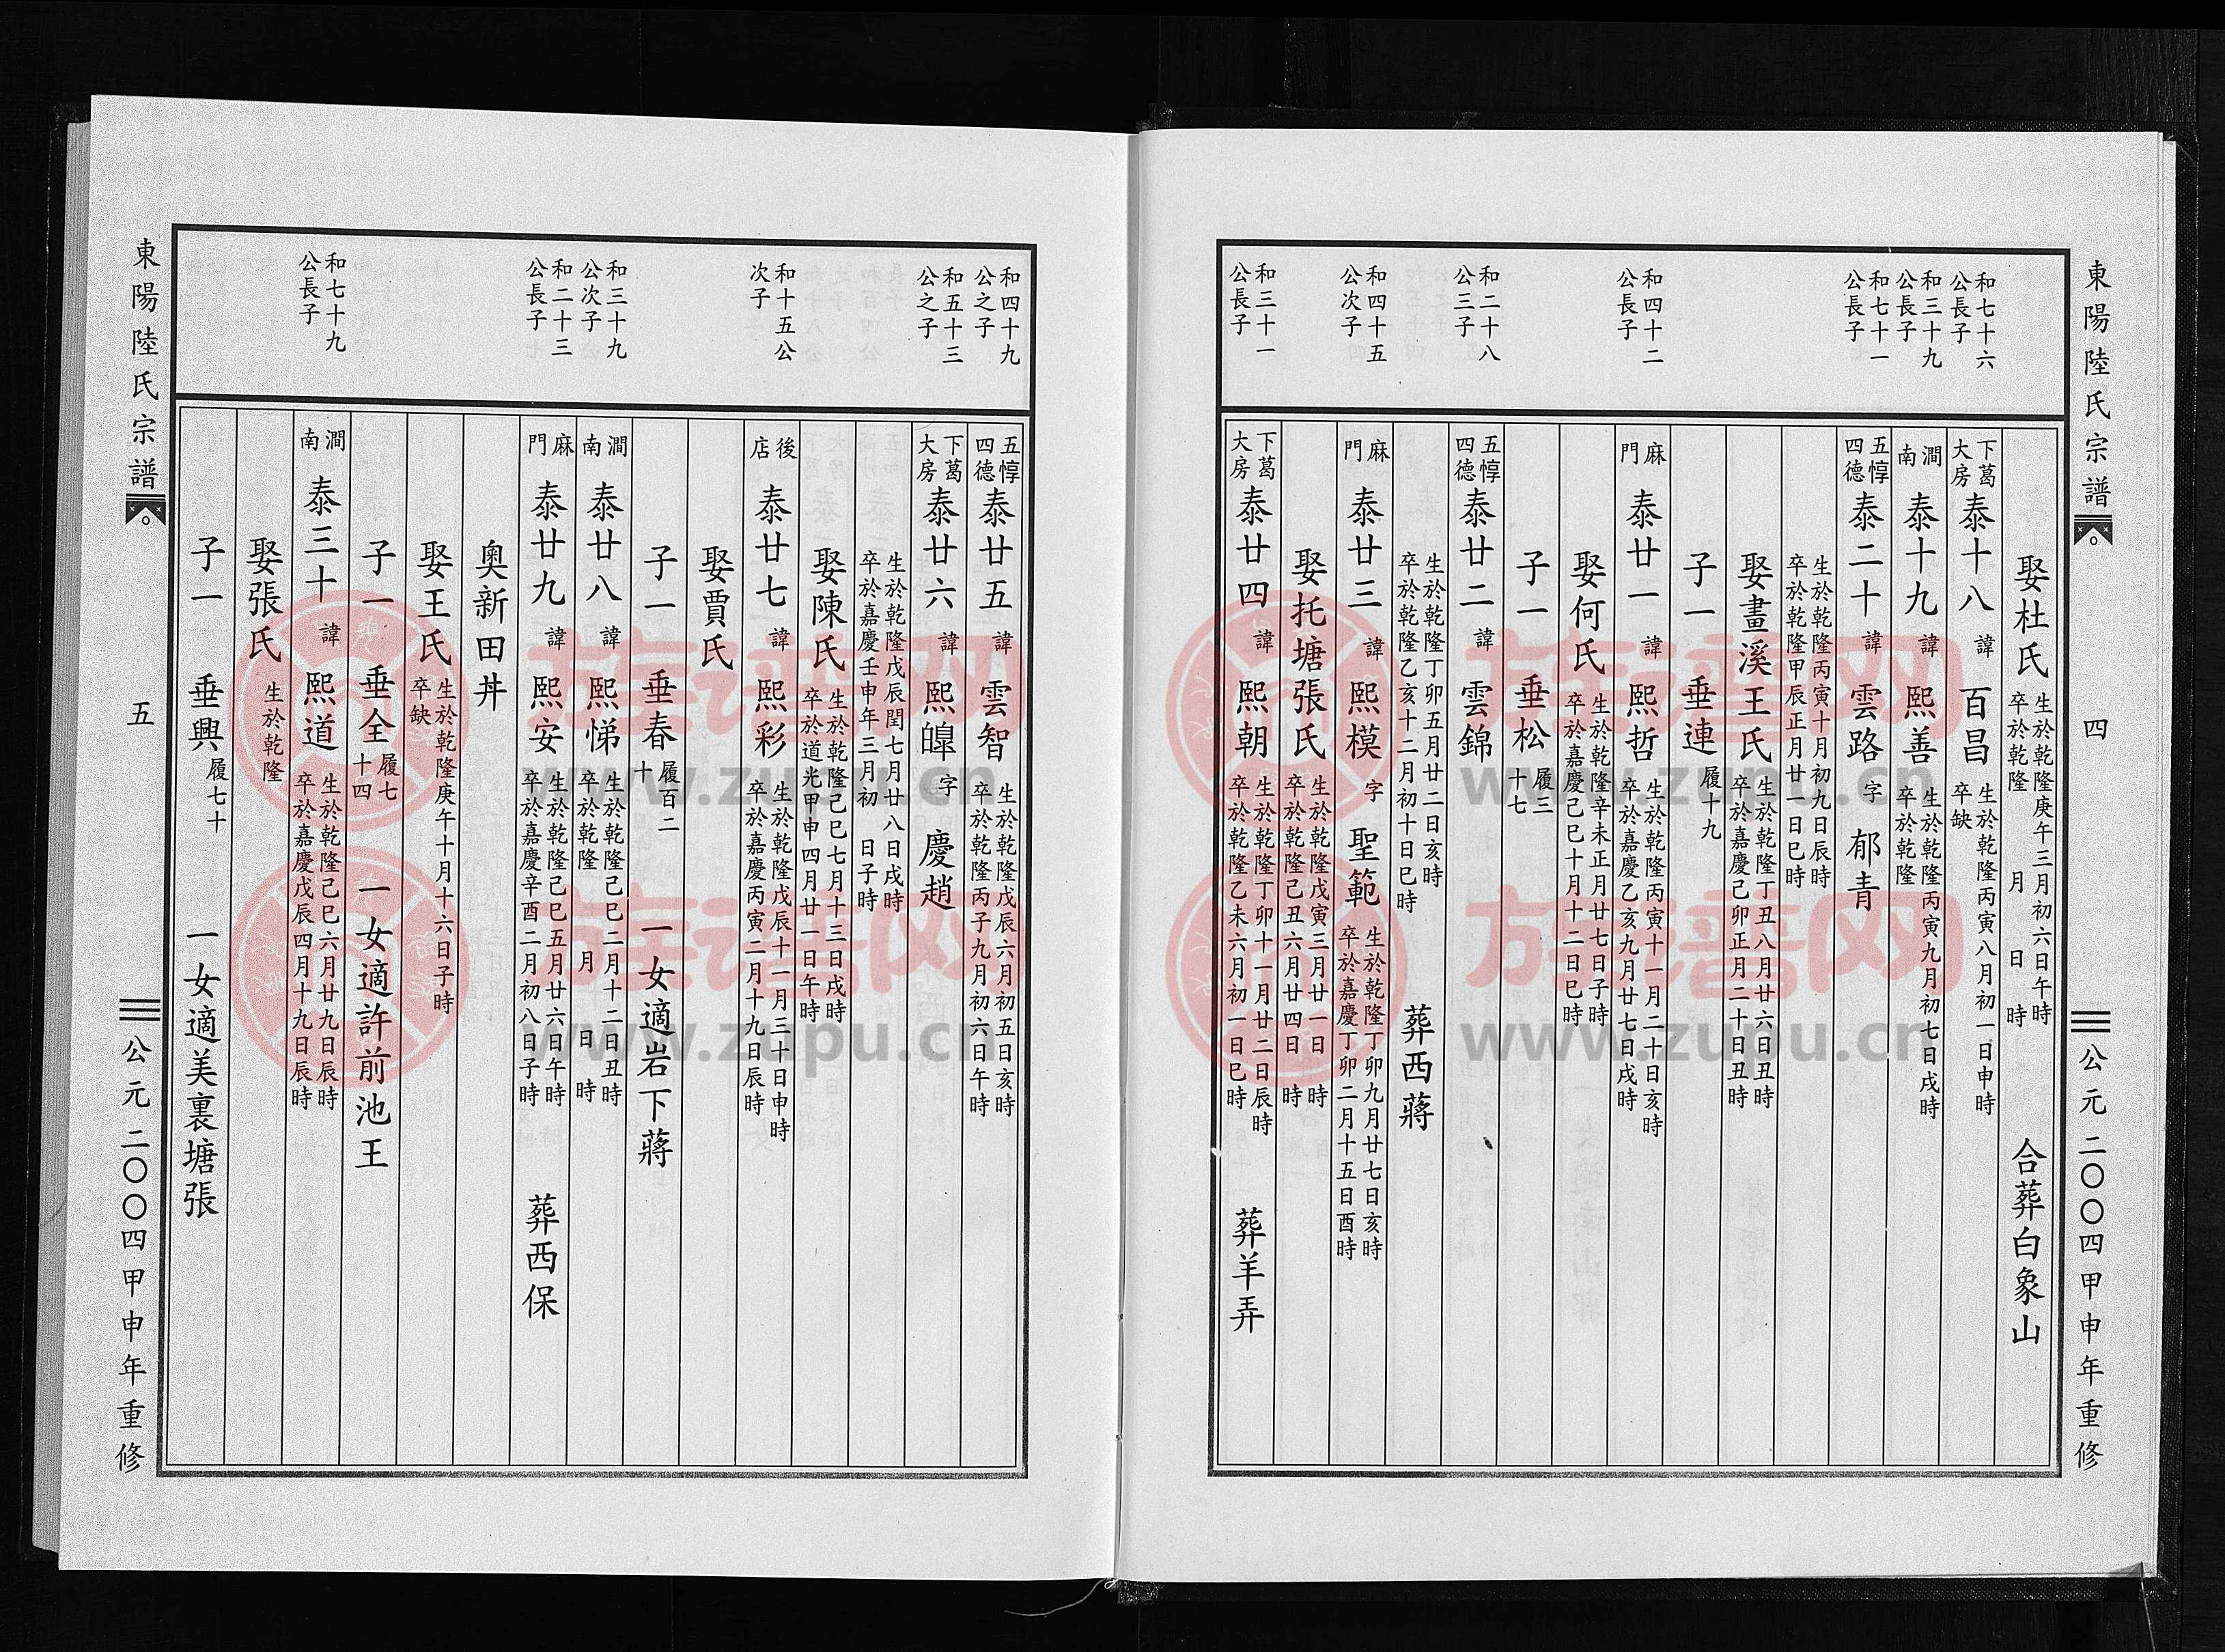 東陽陸氏宗譜
四
公元二〇〇四甲申年重修
娶杜氏 生於乾隆庚午三月初六日午時 卒於乾隆 月 日 時 合葬白象山
和七十六公長子
下葛大房 泰十八 諱 百昌 生於乾隆丙寅八月初一日申時 卒缺
和三十九公長子
澗南 泰十九 諱 熙善 生於乾隆丙寅九月初七日戌時 卒於乾隆
和七十一公長子
五惇四德 泰二十 諱 雲路 字 郁青
生於乾隆丙寅十月初九日辰時 卒於乾隆甲辰正月廿一日巳時
娶畫溪王氏 生於乾隆丁丑八月廿六日丑時 卒於嘉慶己卯正月二十日丑時
子一 垂連 履十九
和四十二公長子
麻門 泰廿一 諱 熙哲 生於乾隆丙寅十一月二十日亥時 卒於嘉慶乙亥九月廿七日戌時
娶何氏 生於乾隆辛未正月廿七日子時 卒於嘉慶己巳十月十二日巳時
子一 垂松 履三十七
和二十八公三子
五惇四德 泰廿二 諱 雲錦
生於乾隆丁卯五月廿二日亥時 卒於乾隆乙亥十二月初十日巳時 葬西蔣
和四十五公次子
麻門 泰廿三 諱 熙模 字 聖範 生於乾隆丁卯九月廿七日亥時 卒於嘉慶丁卯二月十五日酉時
娶托塘張氏 生於乾隆戊寅三月廿一日 時 卒於乾隆己丑六月廿四日 時
和三十一公長子
下葛大房 泰廿四 諱 熙朝 生於乾隆丁卯十一月廿二日辰時 卒於乾隆乙未六月初一日巳時 葬羊弄
和四十九公之子
五惇四德 泰廿五 諱 雲智 生於乾隆戊辰六月初五日亥時 卒於乾隆丙子九月初六日午時
和五十三公之子
下葛大房 泰廿六 諱 熙皡 字 慶趙
生於乾隆戊辰閏七月廿八日戌時 卒於嘉慶壬申年三月初 日子時
娶陳氏 生於乾隆己巳七月十三日戌時 卒於道光甲申四月廿一日午時
和十五公次子
後店 泰廿七 諱 熙彩 生於乾隆戊辰十一月三十日申時 卒於嘉慶丙寅二月十九日辰時
娶賈氏
子一 垂春 履百二十 一女適岩下蔣
和三十九公次子
澗南 泰廿八 諱 熙悌 生於乾隆己巳二月十二日丑時 卒於乾隆 月 日 時
和二十三公長子
麻門 泰廿九 諱 熙安 生於乾隆己巳五月廿六日午時 卒於嘉慶辛酉二月初八日子時 葬西保
奧新田井
娶王氏 生於乾隆庚午十月十六日子時 卒缺
子一 垂全 履七十四 一女適許前池王
和七十九公長子
澗南 泰三十 諱 熙道 生於乾隆己巳六月廿九日辰時 卒於嘉慶戊辰四月十九日辰時
娶張氏 生於乾隆
子一 垂興 履七十 一女適美裏塘張
東陽陸氏宗譜
五
公元二〇〇四甲申年重修
族谱网
www.zupu.cn
族谱网
www.zupu.cn
族谱网
www.zupu.cn
族谱网
www.zupu.cn